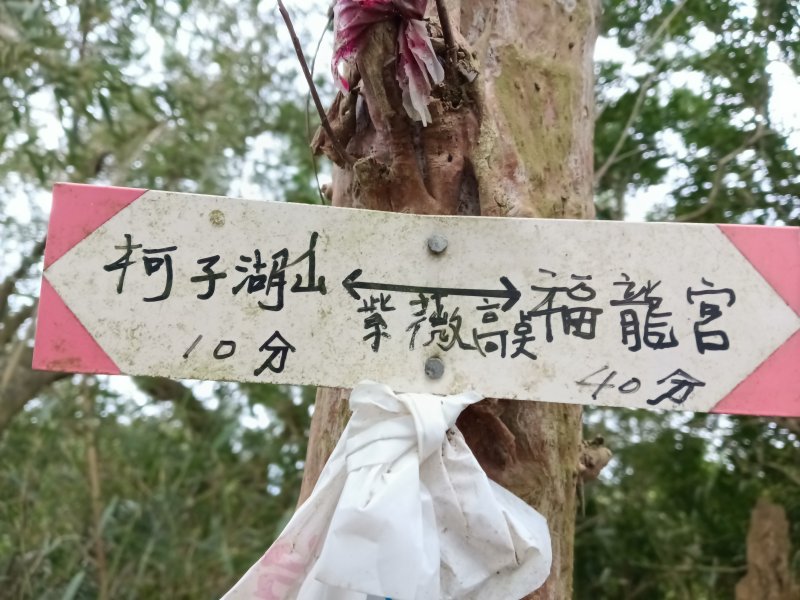 柯子湖山 ←→ 福龍宮
紫薇高點
10分 40分